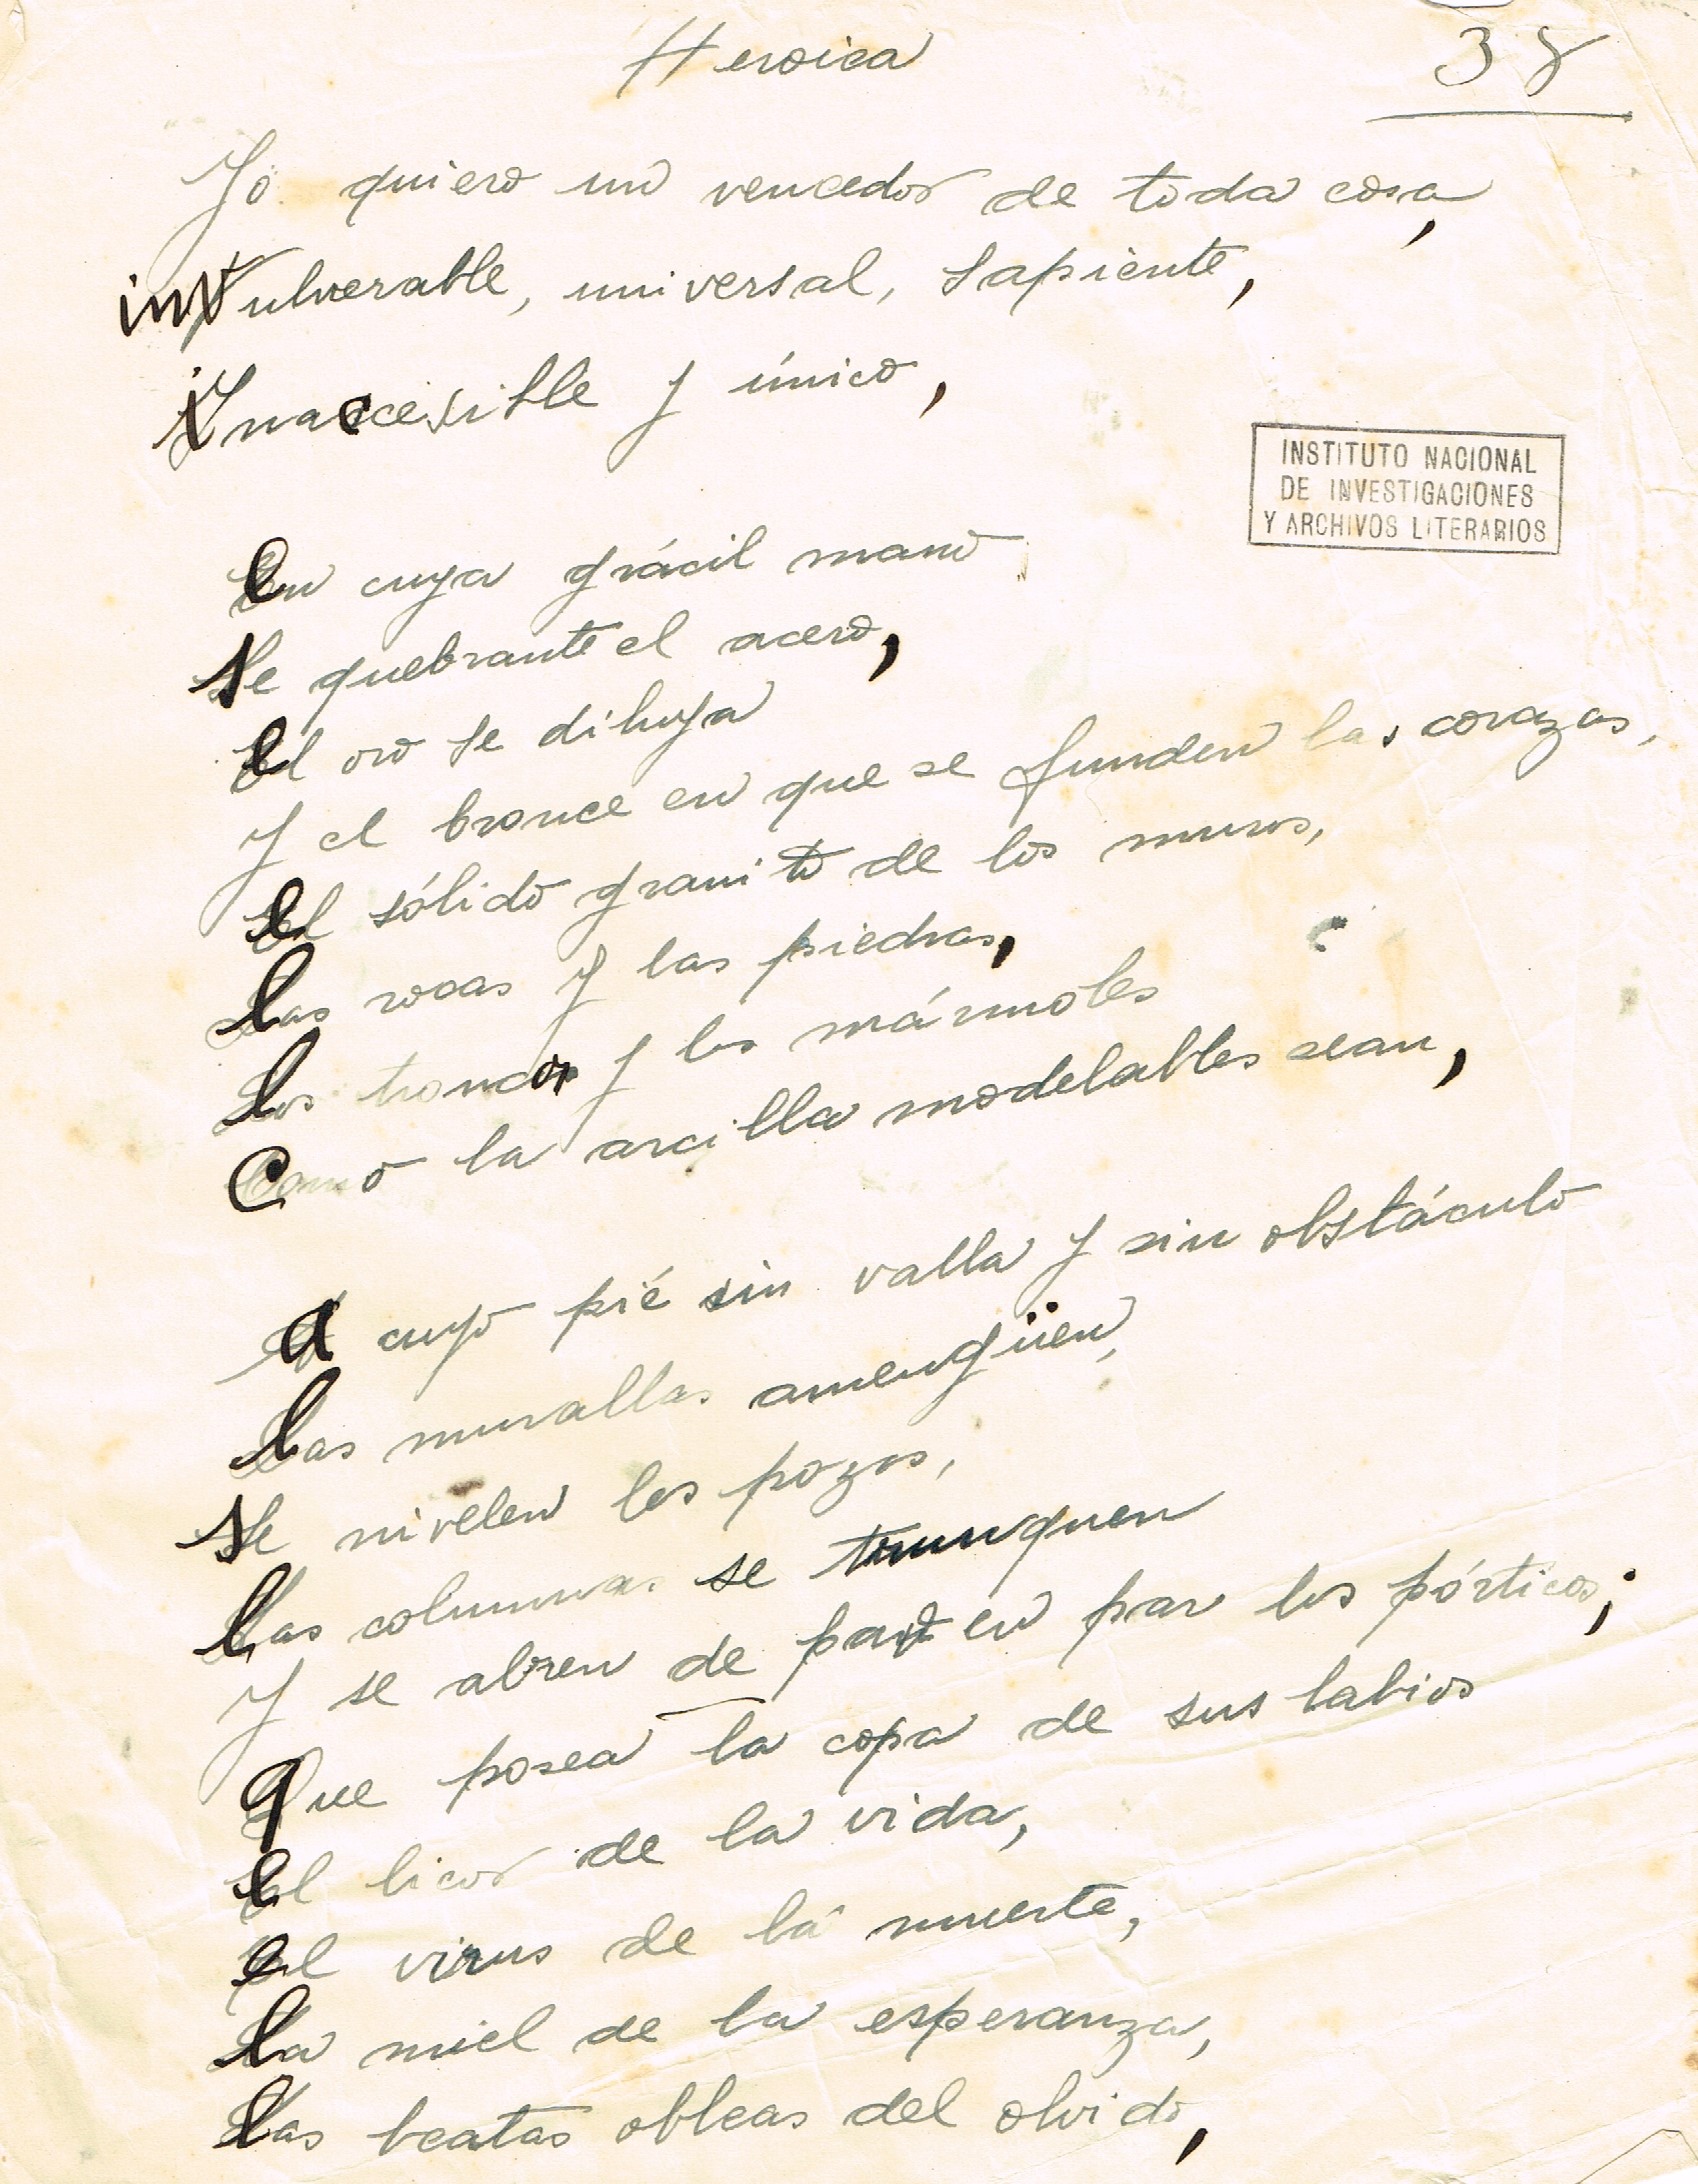 Heroica
38
Yo quiero un vencedor de toda cosa,
invulverable, universal, sapiente,
inaccesible y único,
INSTITUTO NACIONAL
DE INVESTIGACIONES
Y ARCHIVOS LITERARIOS
en cuya grácil mano
se quebrante el acero,
el oro se diluya
y el bronce en que se funden las corazas,
el sólido granito de los muros,
las rocas y las piedras,
los troncos y los mármoles
como la arcilla modelables sean,
a cuyo pié sin valla y sin obstáculo
las murallas amengüen,
se nivelen los pozos,
las columnas se trunquen
y se abren de par en par los pórticos;
que posea la copa de sus labios
el licor de la vida,
el virus de la muerte,
la miel de la esperanza,
las beatas obleas del olvido,